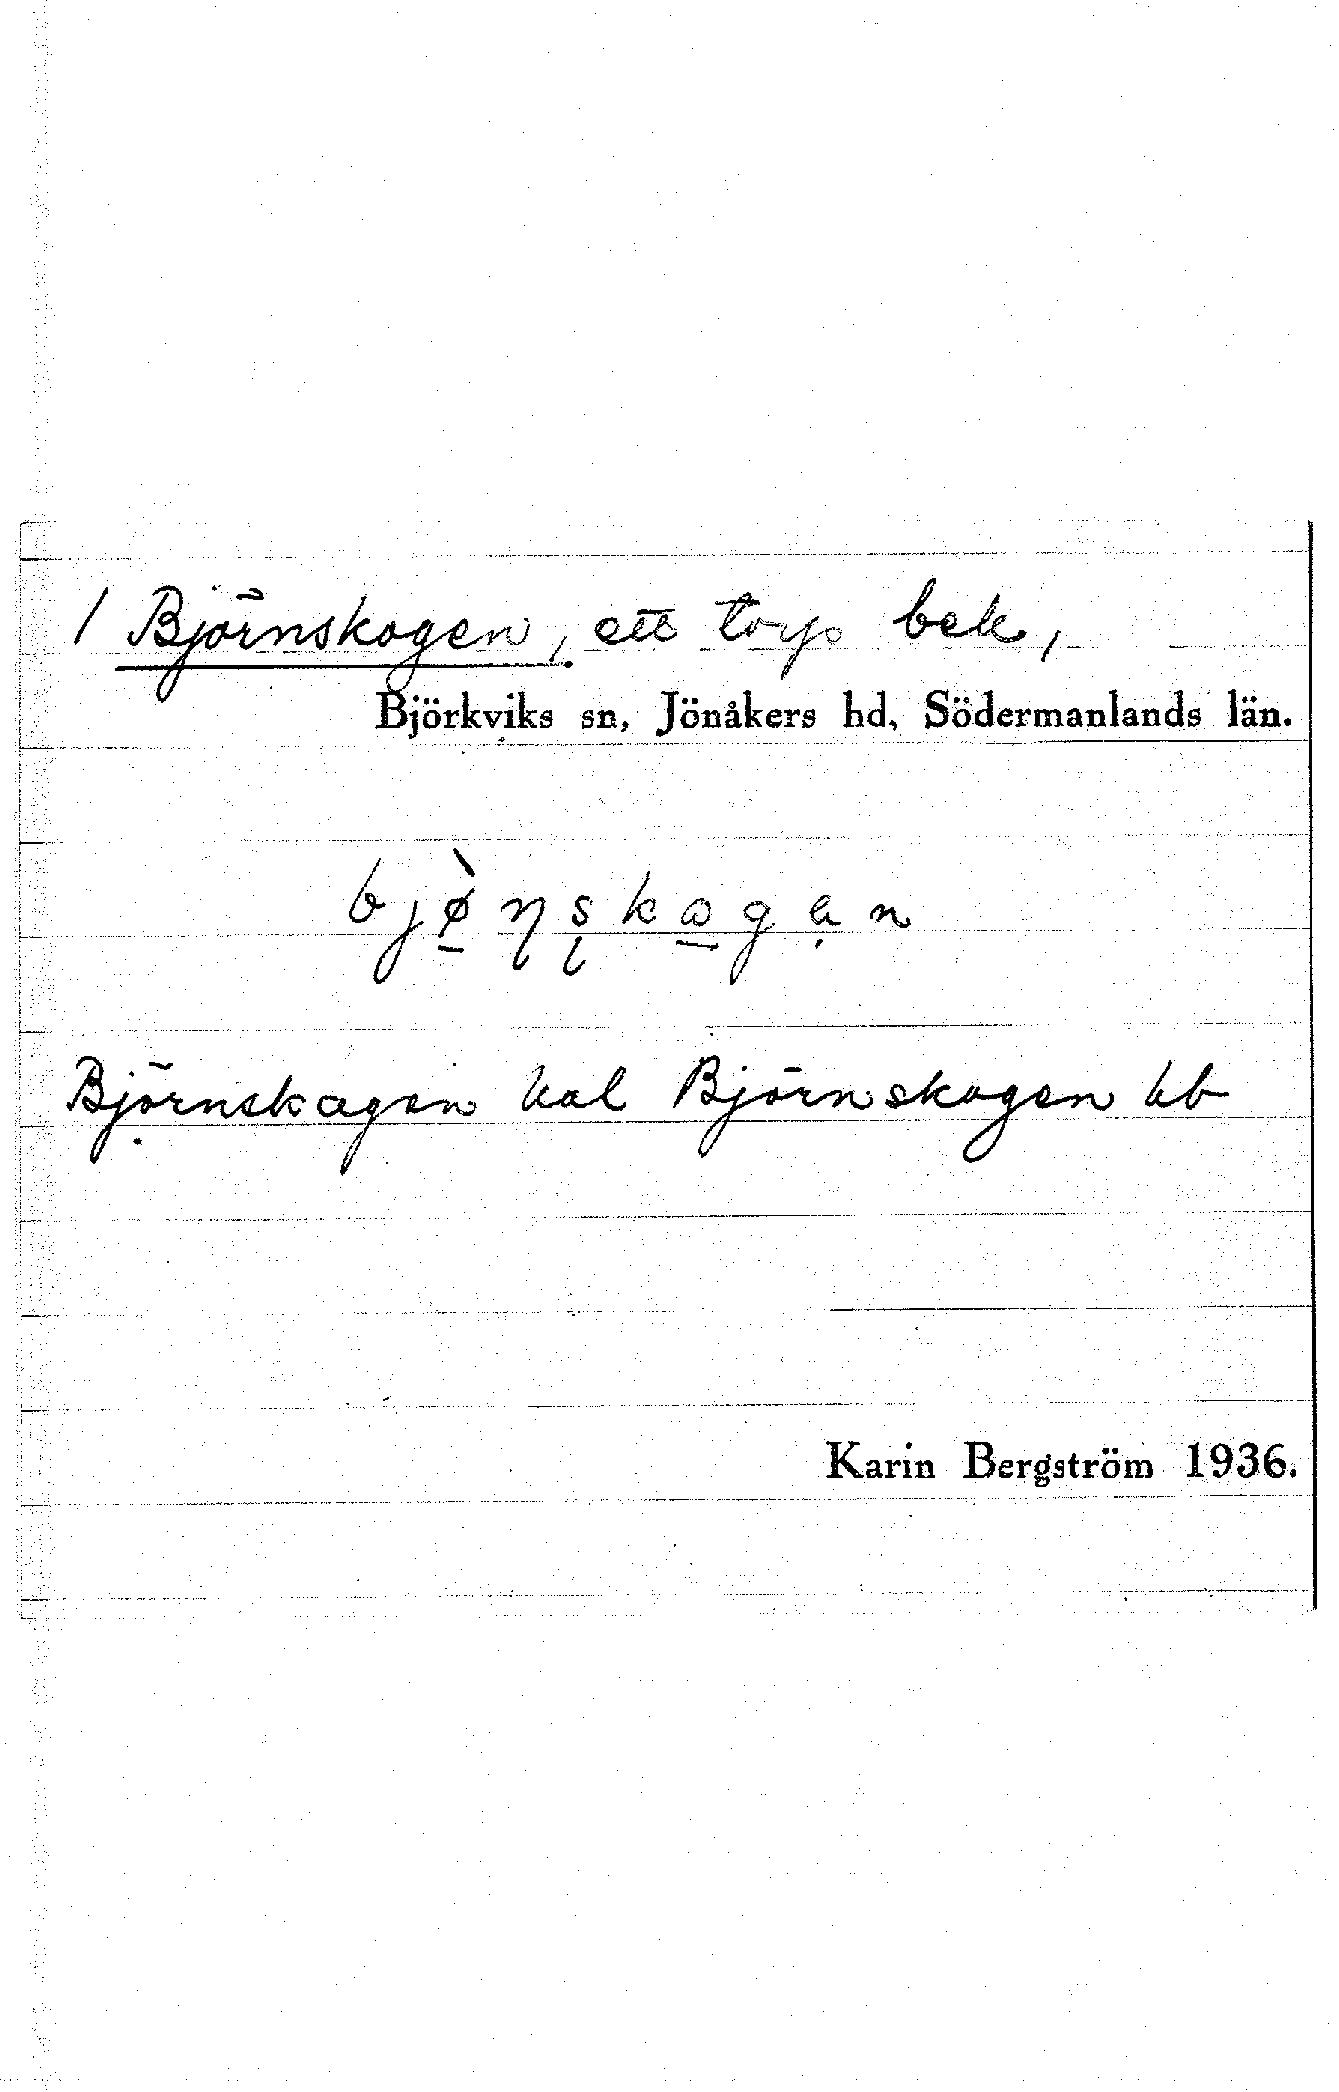 1 Björnskogen, ett torp bek,
Björkviks sn, Jönåkers hd, Södermanlands län.
bjø̠̀ɳʂko̠gạn
Björnskogen kal Björnskogen kb
Karin Bergström 1936.